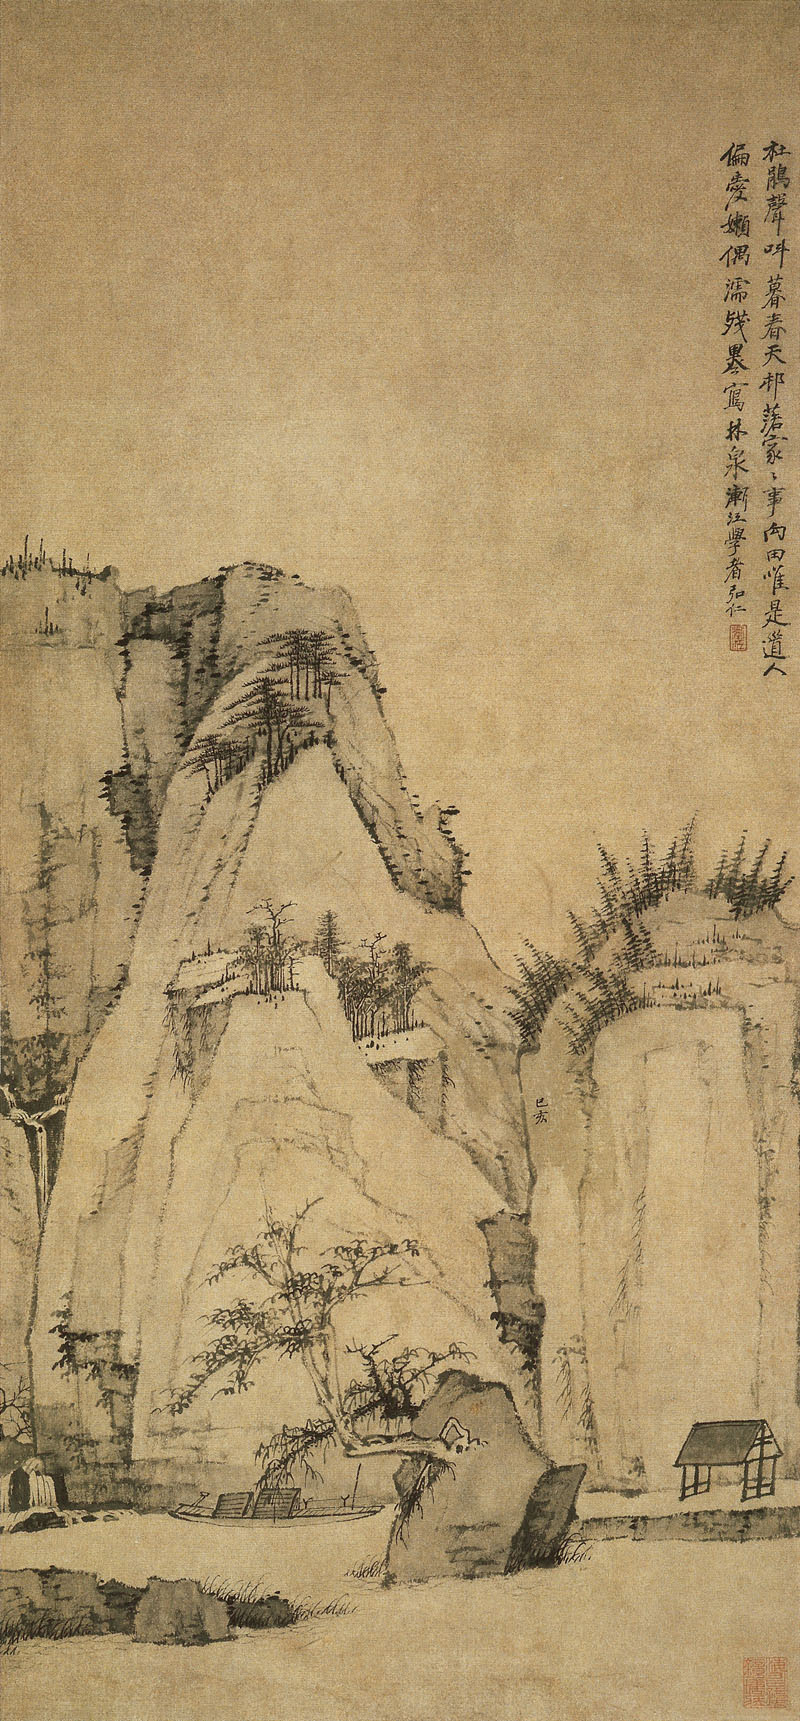 杜鵑聲叫暮春天邨落家〻事向田惟是道人
偏愛嬾偶濡殘墨寫林泉漸江學者弘仁
己亥